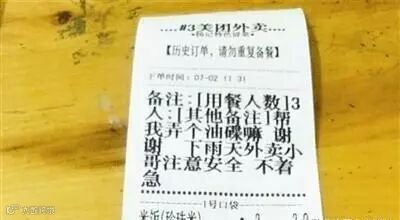 #3美团外卖
【历史订单,请勿重复备餐】
下单时间:07-02 11 31
备注:[用餐人数]3
人:[其他备注]帮
我弄个油碟嘛 谢
谢 下雨天外卖小
哥注意安全 不着
急
1号口袋
米饭(珍珠米)